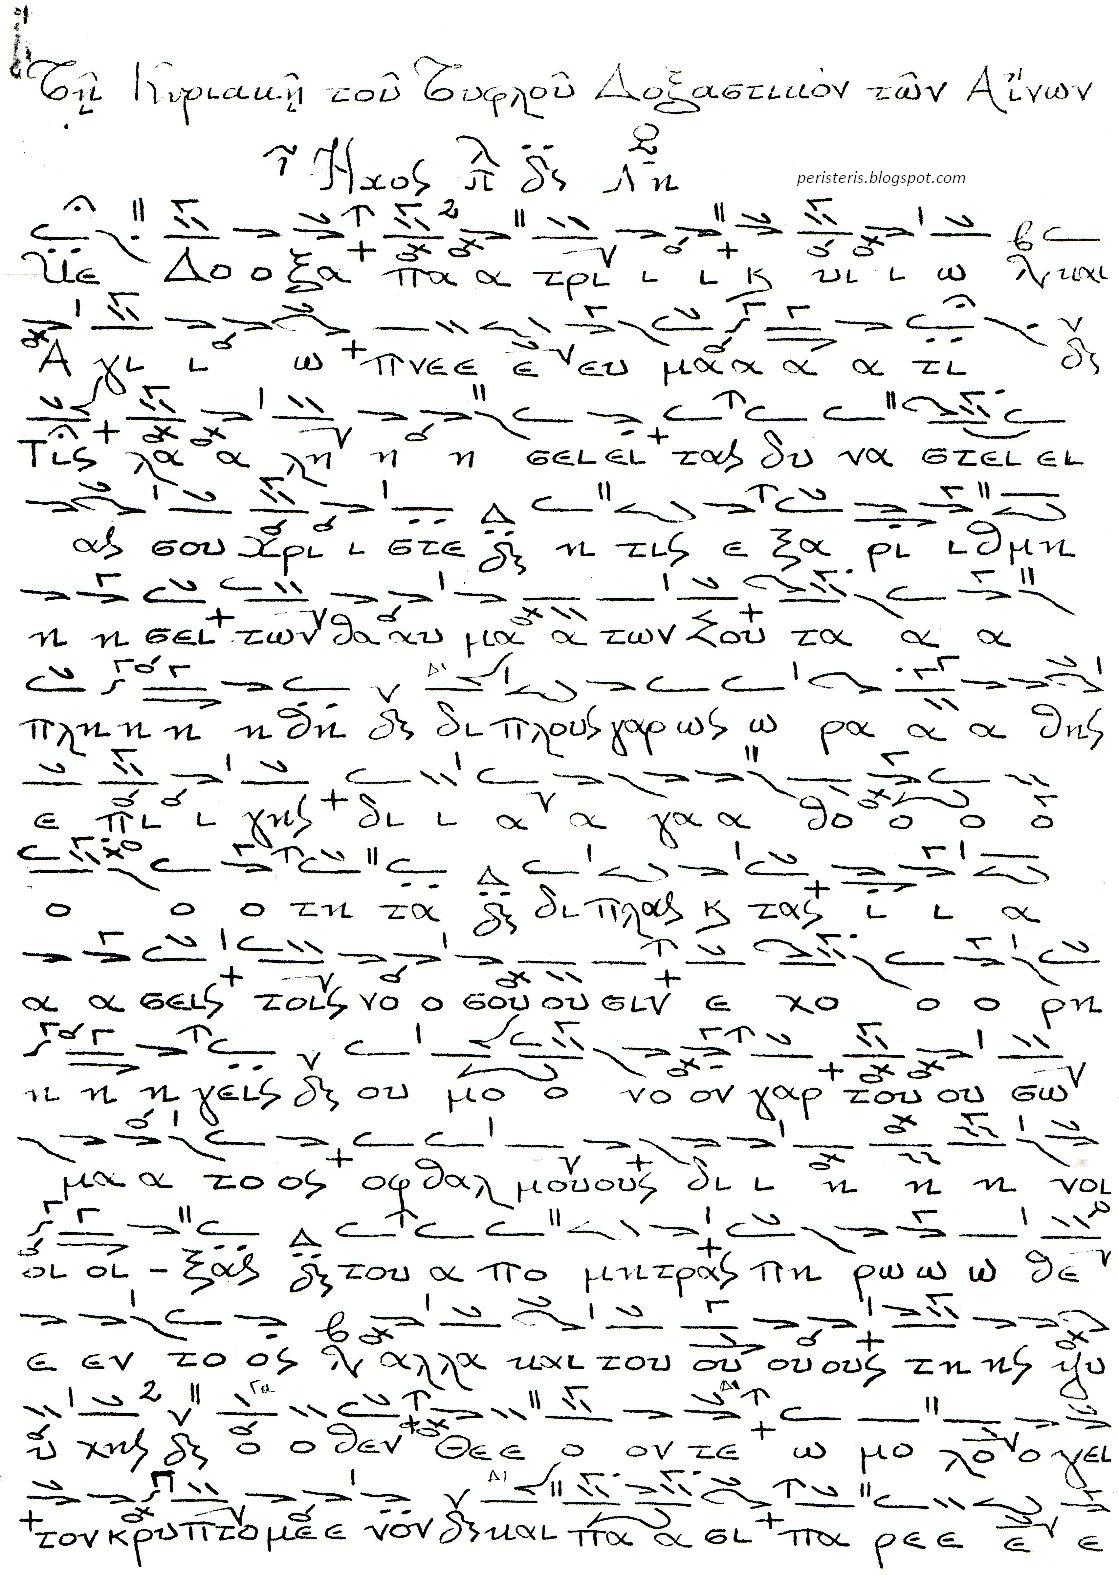 Τῇ Κυριακῇ τοῦ Τυφλοῦ Δοξαστικὸν τῶν Αἴνων
Ἦχος λ π δς Νη
peristeris.blogspot.com
Νε Δο ο ξα πα α τρι ι ι κ υι ι ω και
Α γι ι ω πνεε ε ευ μα α α α τι δς
Τις λα α λη η η σει ει τας δυ να στει ει
ας σου Χρι ι στε δς η τις ε ξα ρι ι θμη
η η σει των θα αυ μα α των Σου τα α α
πλη η η η θη δς δι πλους γαρ ως ω ρα α α θης
ε πι ι γης δι ι α α γα α θο ο ο ο
ο ο ο τη τα δς δι πλας κ τας ι ι α
α α σεις τοις νο ο σου ου σιν ε χο ο ο ρη
η η η γεις δς ου μο ο νο ον γαρ του ου σω
μα α το ος οφ θαλ μου ους δι ι η η η νοι
οι οι - ξας δς του α πο μητρας πη ρω ω ω θε
ε εν το ος αλλα και του ου ου ους τη ης ψυ
υ χης δς ο ο θεν Θε ε ο ον τε ω μο λο ο γει
τον κρυπτο με ε νον δς και πα α σι πα ρε ε ε ε